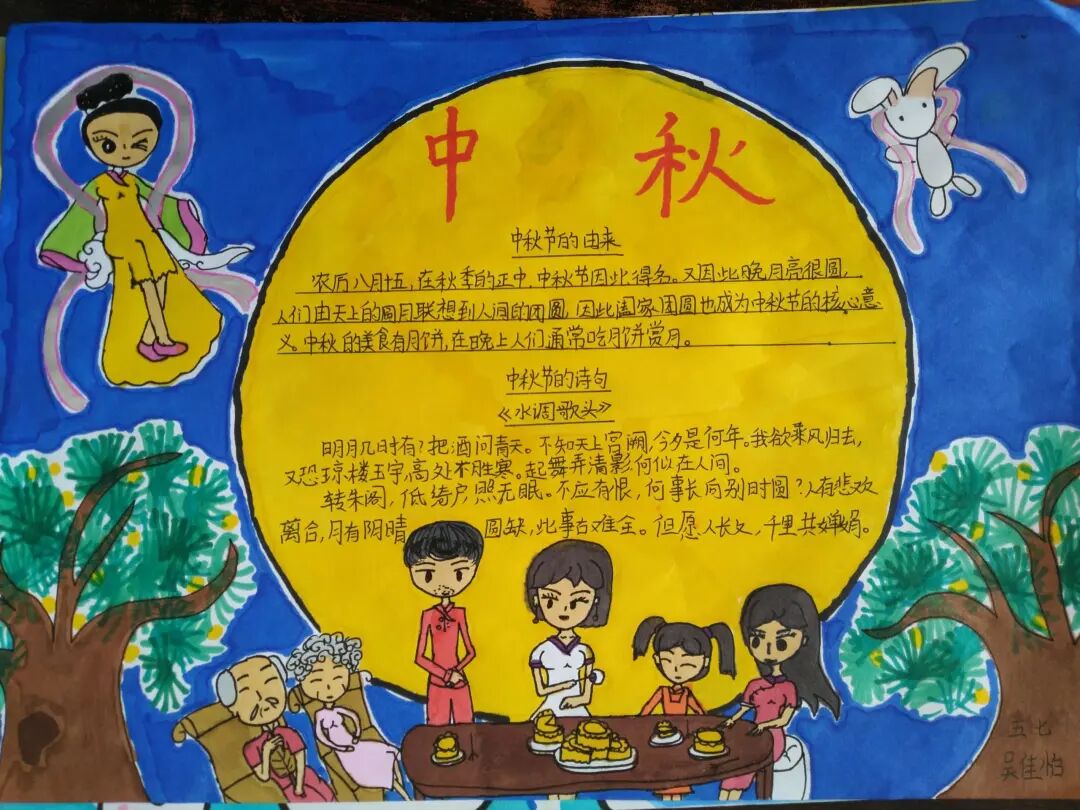 中秋
中秋节的由来
农历八月十五,在秋季的正中,中秋节因此得名。又因此晚月亮很圆,
人们由天上的圆月联想到人间的团圆,因此阖家团圆也成为中秋节的核心意
义。中秋的美食有月饼,在晚上人们通常吃月饼赏月。
中秋节的诗句
《水调歌头》
明月几时有?把酒问青天。不知天上宫阙,今夕是何年。我欲乘风归去,
又恐琼楼玉宇,高处不胜寒。起舞弄清影何似在人间。
转朱阁,低绮户照无眠。不应有恨,何事长向别时圆?人有悲欢
离合,月有阴晴圆缺,此事古难全。但愿人长久,千里共婵娟。
五七
吴佳怡